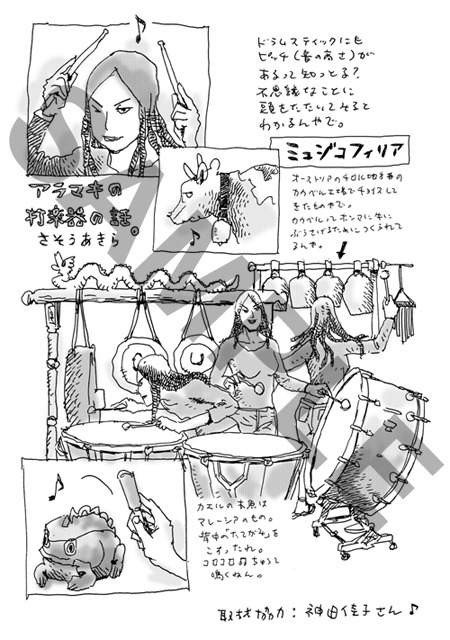 ドラムスティックにも
ピッチ(音の高さ)が
あるって知っとる?
不思議なことに
頭をたたいてみると
わかるんやで。
ミュジコフィリア
オーストリアのチロル地方の
カウベル工場でチョイスして
きたものやで。
カウベルってホンマに牛に
ぶらさげるためにつくられて
るんや。
アラマキの
打楽器の話。
さそうあきら
カエルの木魚は
マレーシアのもの。
背中の「たてがみ」を
こすったれ。
コロコロ
鳴くねん。
取材協力:神田佳子さん♪
SAMPLE